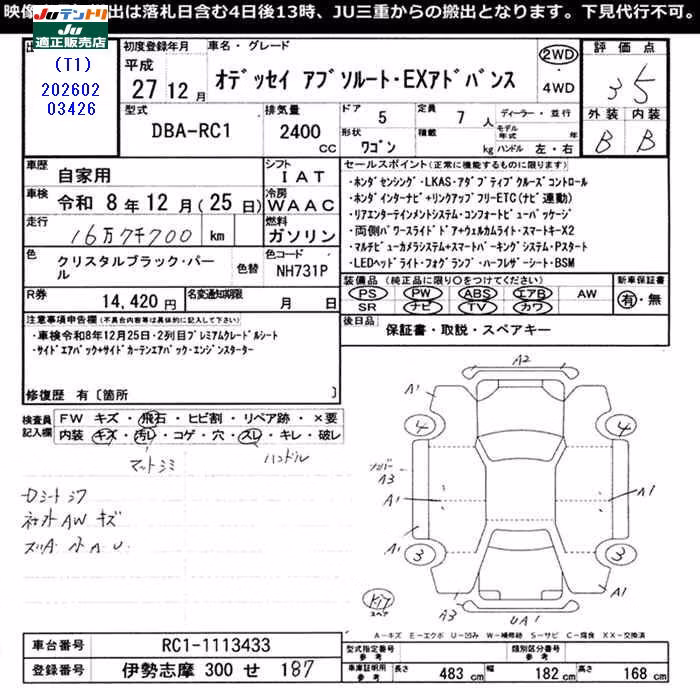 映像 出は落札日含む4日後13時、JU三重からの搬出となります。下見代行不可。
JUテントリ
JU
適正販売店
(T1)
202602
03426
初度登録年月
平成
27 12 月
車名・グレード
オデッセイ アブソルート・EXアドバンス
2WD
・
4WD
評価点
3.5
外装 内装
B B
型式
DBA-RC1
排気量
2400
cc
ドア
5
形状
ワゴン
定員
7 人
積載
kg
ディーラー・並行
モデル年式 年
ハンドル 左・右
車歴
自家用
シフト
IAT
車検
令和 8 年 12 月 (25 日)
冷房
WAAC
走行
16万7千700 km
燃料
ガソリン
色
クリスタルブラック・パール
色替
色コード
NH731P
R券
14,420 円
名変通知期限
月 日
セールスポイント(正常に機能するものに限ります)
・ホンダセンシング・LKAS・アダプティブクルーズコントロール
・ホンダインターナビ+リンクアップフリーETC(ナビ連動)
・リアエンターテイメントシステム・コンフォートビューパッケージ
・両側パワースライドドア+ウェルカムライト・スマートキーX2
・マルチビューカメラシステム+スマートパーキングシステム・Pスタート
・LEDヘッドライト・フォグランプ・ハーフレザーシート・BSM
装備品(純正品に限り○をつけてください)
PS PW ABS エアB AW
SR ナビ TV カワ
新車保証書
有・無
後日品
保証書・取説・スペアキー
注意事項申告欄(不具合内容等は具体的に記入して下さい)
・車検令和8年12月25日・2列目プレミアムクレードルシート
・サイドエアバック+サイドカーテンエアバック・エンジンスターター
修復歴 有〔箇所 〕
検査員記入欄
FW キズ・飛石・ヒビ割・リペア跡・×要
内装 キズ・汚レ・コゲ・穴・スレ・キレ・破レ
マットシミ
ハンドル
Dシートシワ
社外AW キズ
A2
A1
4
4
A3
A1
A1
A1
3
3
A1
A3
UA1
スペア
A-キズ E-エクボ U-凹み W-補修跡 S-サビ C-腐食 XX-交換済
車台番号
RC1-1113433
登録番号
伊勢志摩 300 せ 187
型式指定番号
参考
類別区分番号
参考
車庫証明用
参考
長さ
483 cm
幅
182 cm
高さ
168 cm